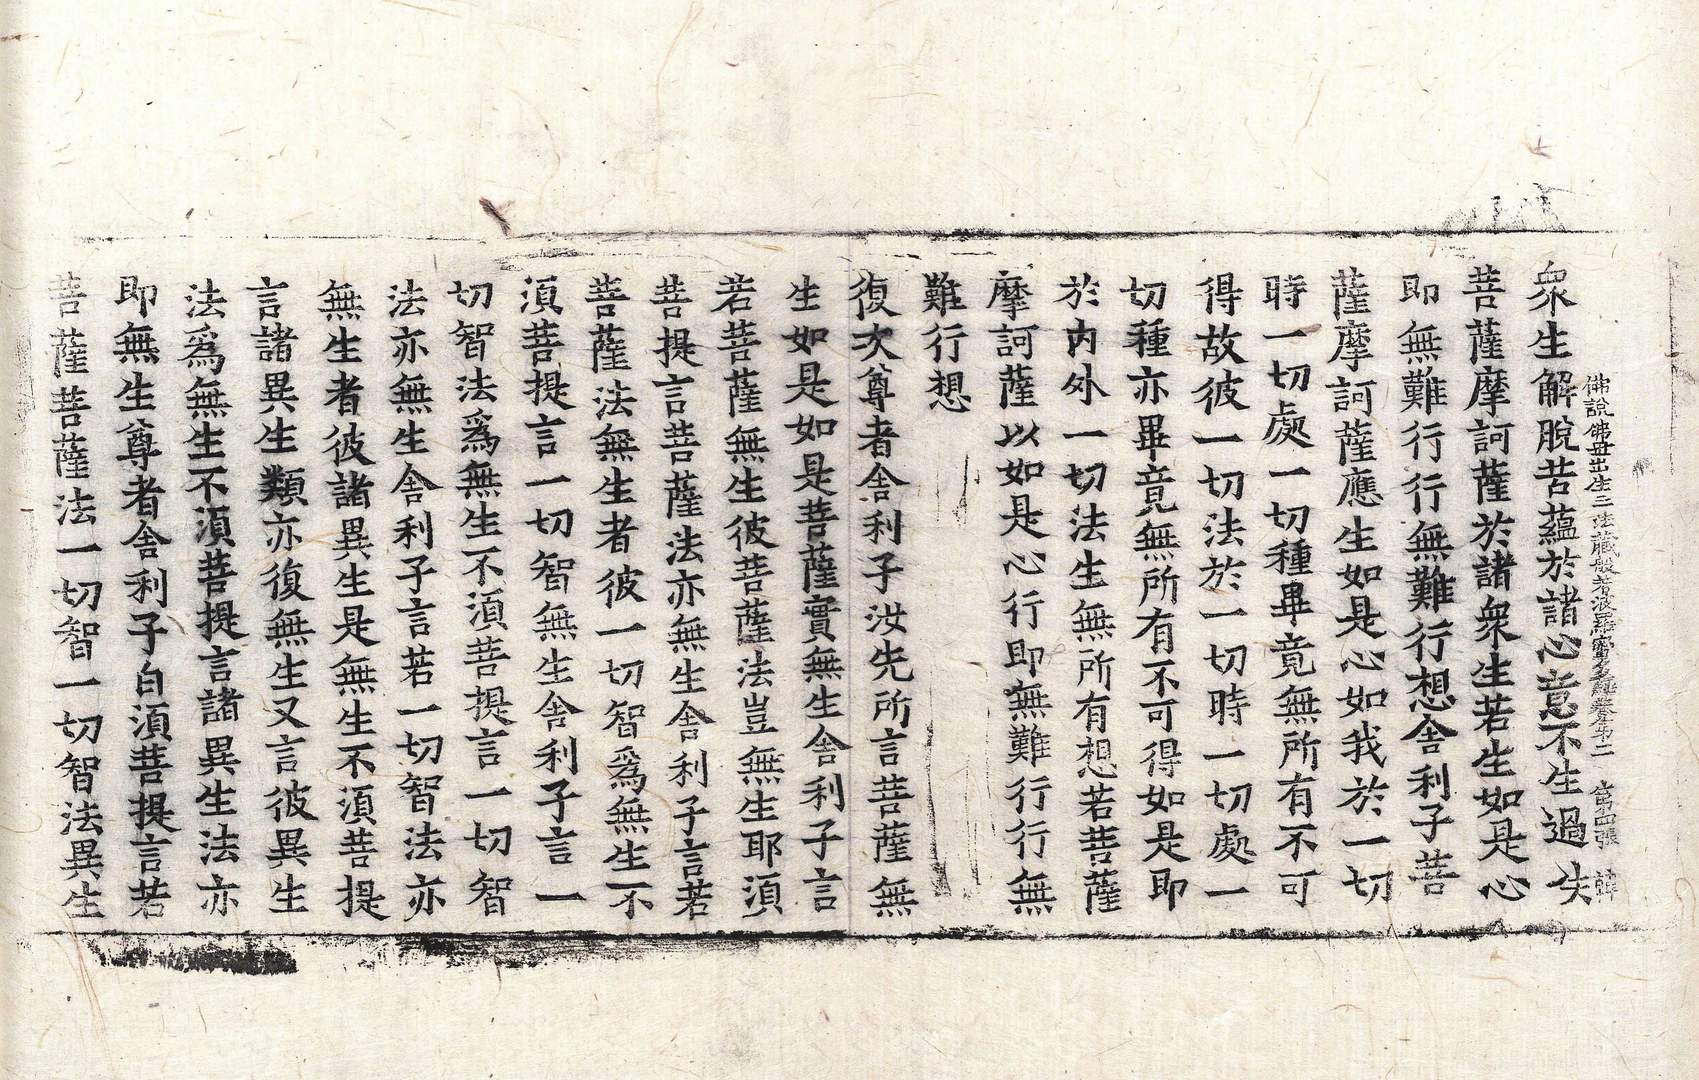 佛說佛母出生三法藏般若波羅蜜多經卷第二 第四張 韓
衆生解脫苦蘊於諸心意不生過失
菩薩摩訶薩於諸衆生若生如是心
即無難行行無難行想舍利子菩
薩摩訶薩應生如是心如我於一切
時一切處一切種畢竟無所有不可
得故彼一切法於一切時一切處一
切種亦畢竟無所有不可得如是即
於內外一切法生無所有想若菩薩
摩訶薩以如是心行即無難行行無
難行想
復次尊者舍利子汝先所言菩薩無
生如是如是菩薩實無生舍利子言
若菩薩無生彼菩薩法豈無生耶須
菩提言菩薩法亦無生舍利子言若
菩薩法無生者彼一切智爲無生不
須菩提言一切智無生舍利子言一
切智法爲無生不須菩提言一切智
法亦無生舍利子言若一切智法亦
無生者彼諸異生是無生不須菩提
言諸異生類亦復無生又言彼異生
法爲無生不須菩提言諸異生法亦
即無生尊者舍利子白須菩提言若
菩薩菩薩法一切智一切智法異生